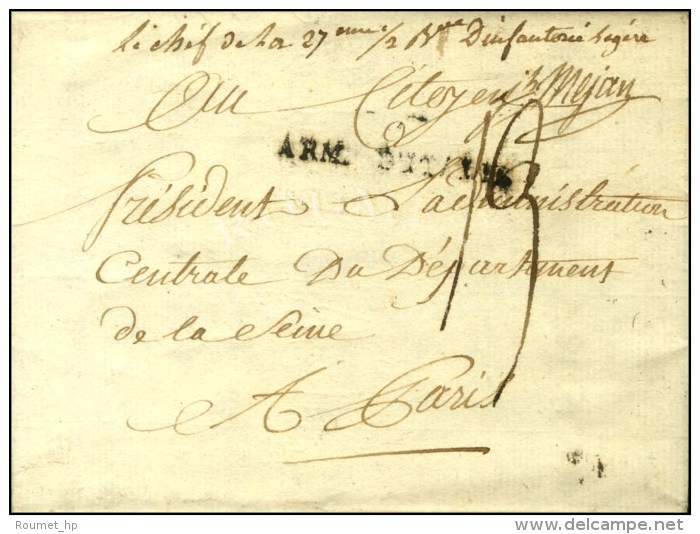 le chef de la 27eme 1/2 Bde D'infanterie légère
Au Citoyen
Mejan
ARM. D'ITALIE
Président L'administration
Centrale Du Département
de la Seine
A Paris
Roumet_hp
delcampe.net